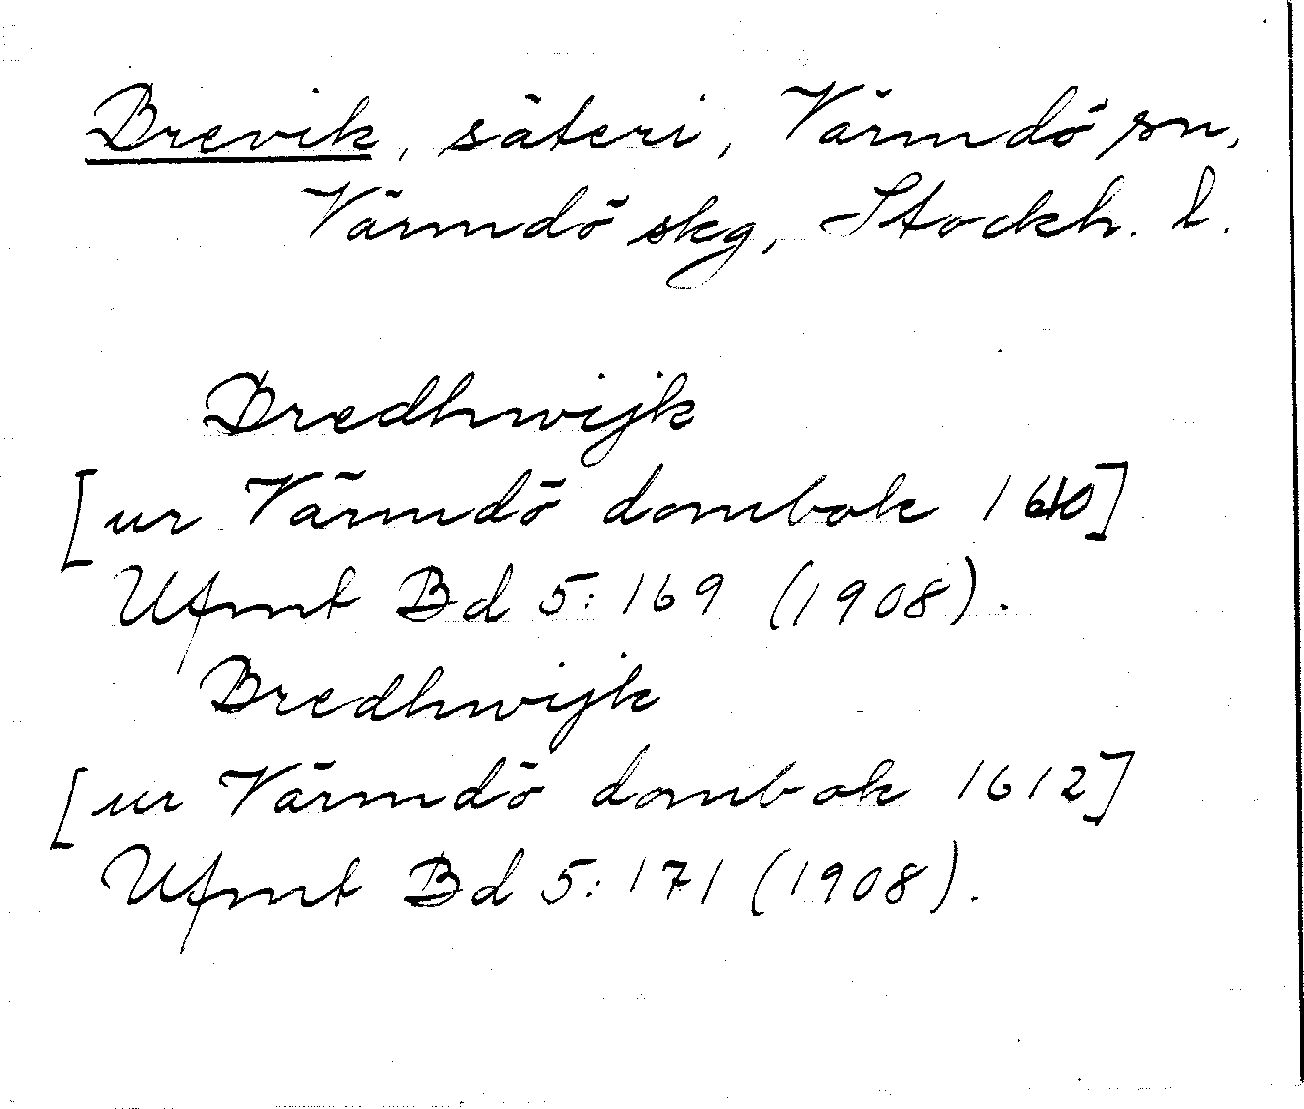 Brevik, säteri, Värmdö sn,
Värmdö skg, Stockh. l.
Bredhwijk
[ur Värmdö dombok 1610]
Ufmt Bd 5:169 (1908).
Bredhwijk
[ur Värmdö dombok 1612]
Ufmt Bd 5:171 (1908).